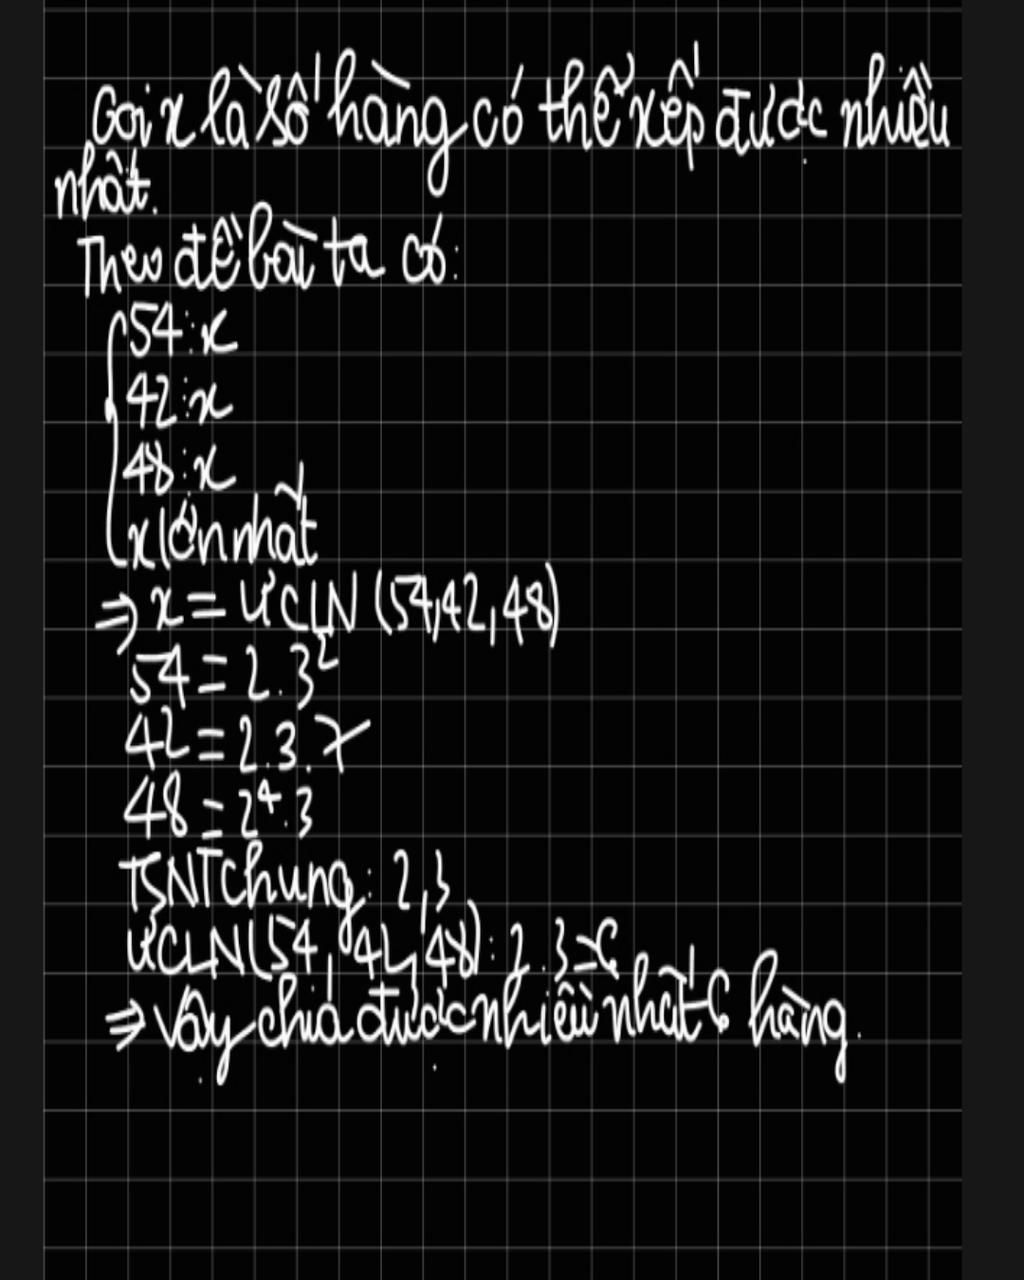 Gọi x là số hàng có thể xếp được nhiều
nhất.
Theo đề bài ta có:
54⋮x
42⋮x
48⋮x
x lớn nhất
⇒ x = ƯCLN (54,42,48)
54 = 2.3²
42 = 2.3.7
48 = 2⁴.3
TSNT chung: 2,3
ƯCLN(54, 42,48): 2.3=6
⇒ Vậy chia được nhiều nhất 6 hàng.